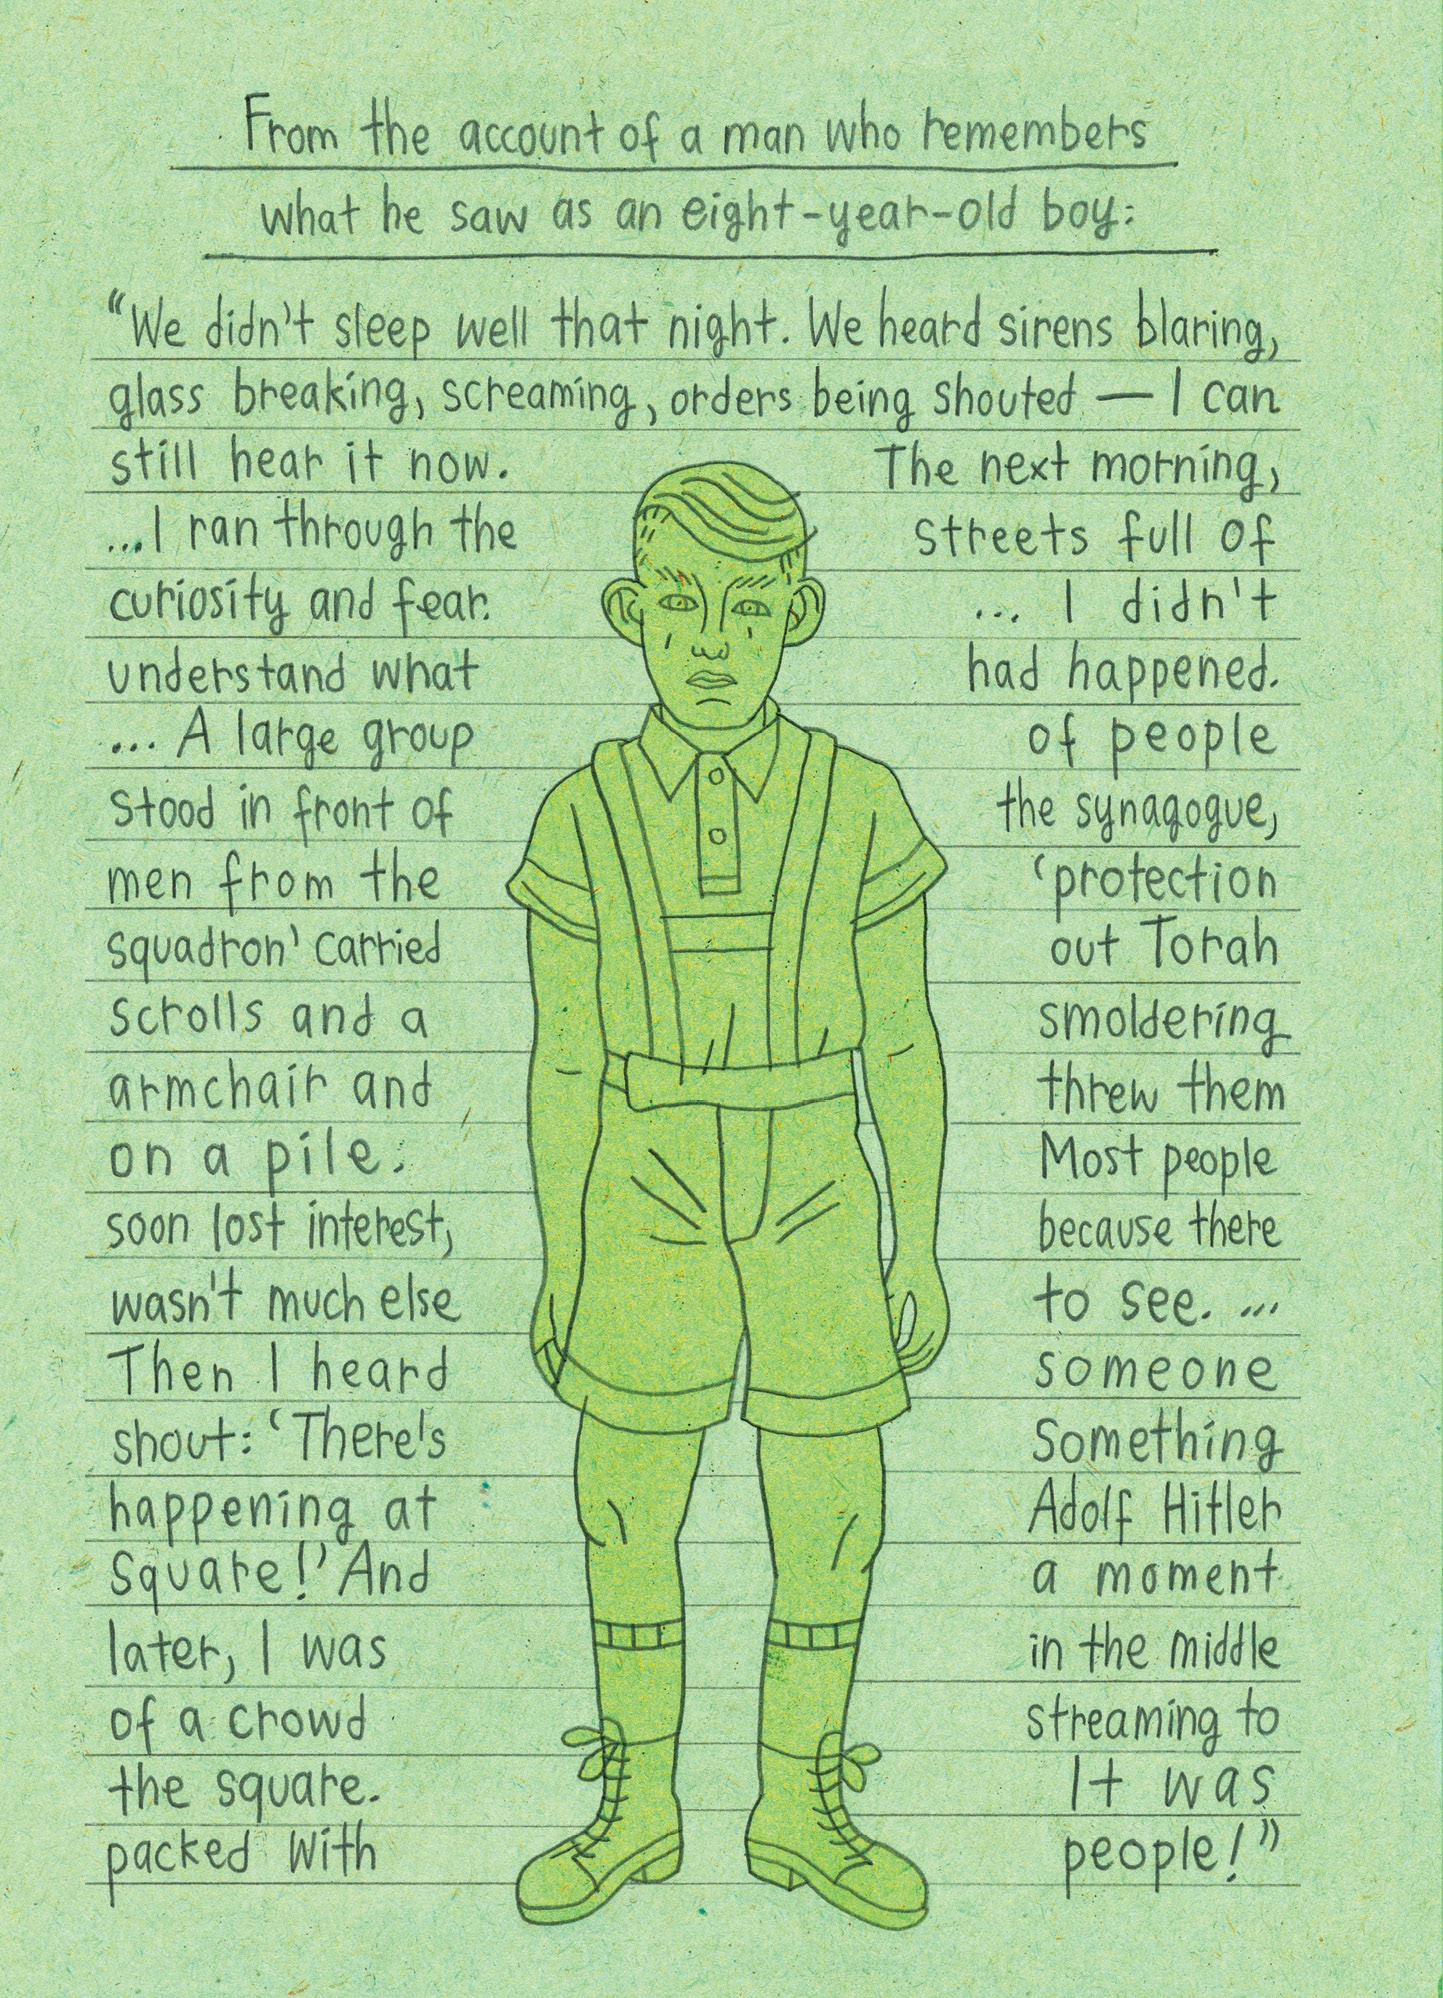 From the account of a man who remembers
what he saw as an eight-year-old boy:
“We didn't sleep well that night. We heard sirens blaring,
glass breaking, screaming, orders being shouted — I can
still hear it now. The next morning,
...I ran through the streets full of
curiosity and fear. ... I didn't
understand what had happened.
... A large group of people
stood in front of the synagogue,
men from the ‘protection
squadron’ carried out Torah
scrolls and a smoldering
armchair and threw them
on a pile. Most people
soon lost interest, because there
wasn't much else to see. ...
Then I heard someone
shout: ‘There's Something
happening at Adolf Hitler
Square!’ And a moment
later, I was in the middle
of a crowd streaming to
the square. It was
packed with people!”